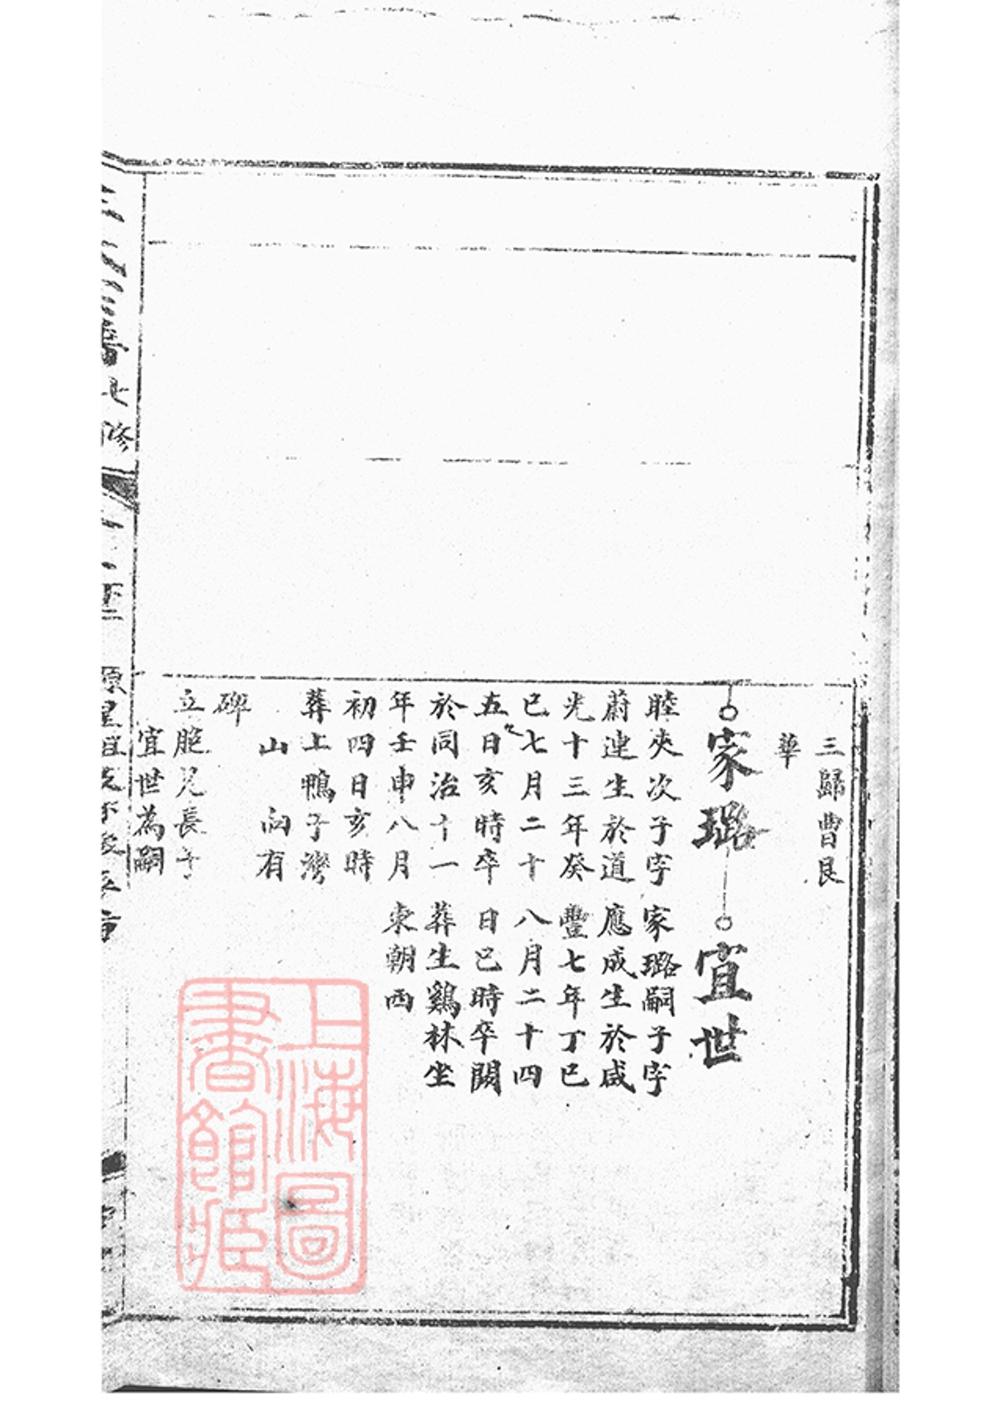 三歸曹艮
華
家璐
睦夾次子字
蔚連生於道
光十三年癸
巳七月二十
五日亥時卒
於同治十一
年壬申八月
初四日亥時
葬上鴨子灣
山 向有
碑
立胞兄長子
宜世為嗣
宜世
家璐嗣子字
應成生於咸
豐七年丁巳
八月二十四
日巳時卒闕
葬生鷄林坐
東朝西
譜七修
上海圖
書館藏